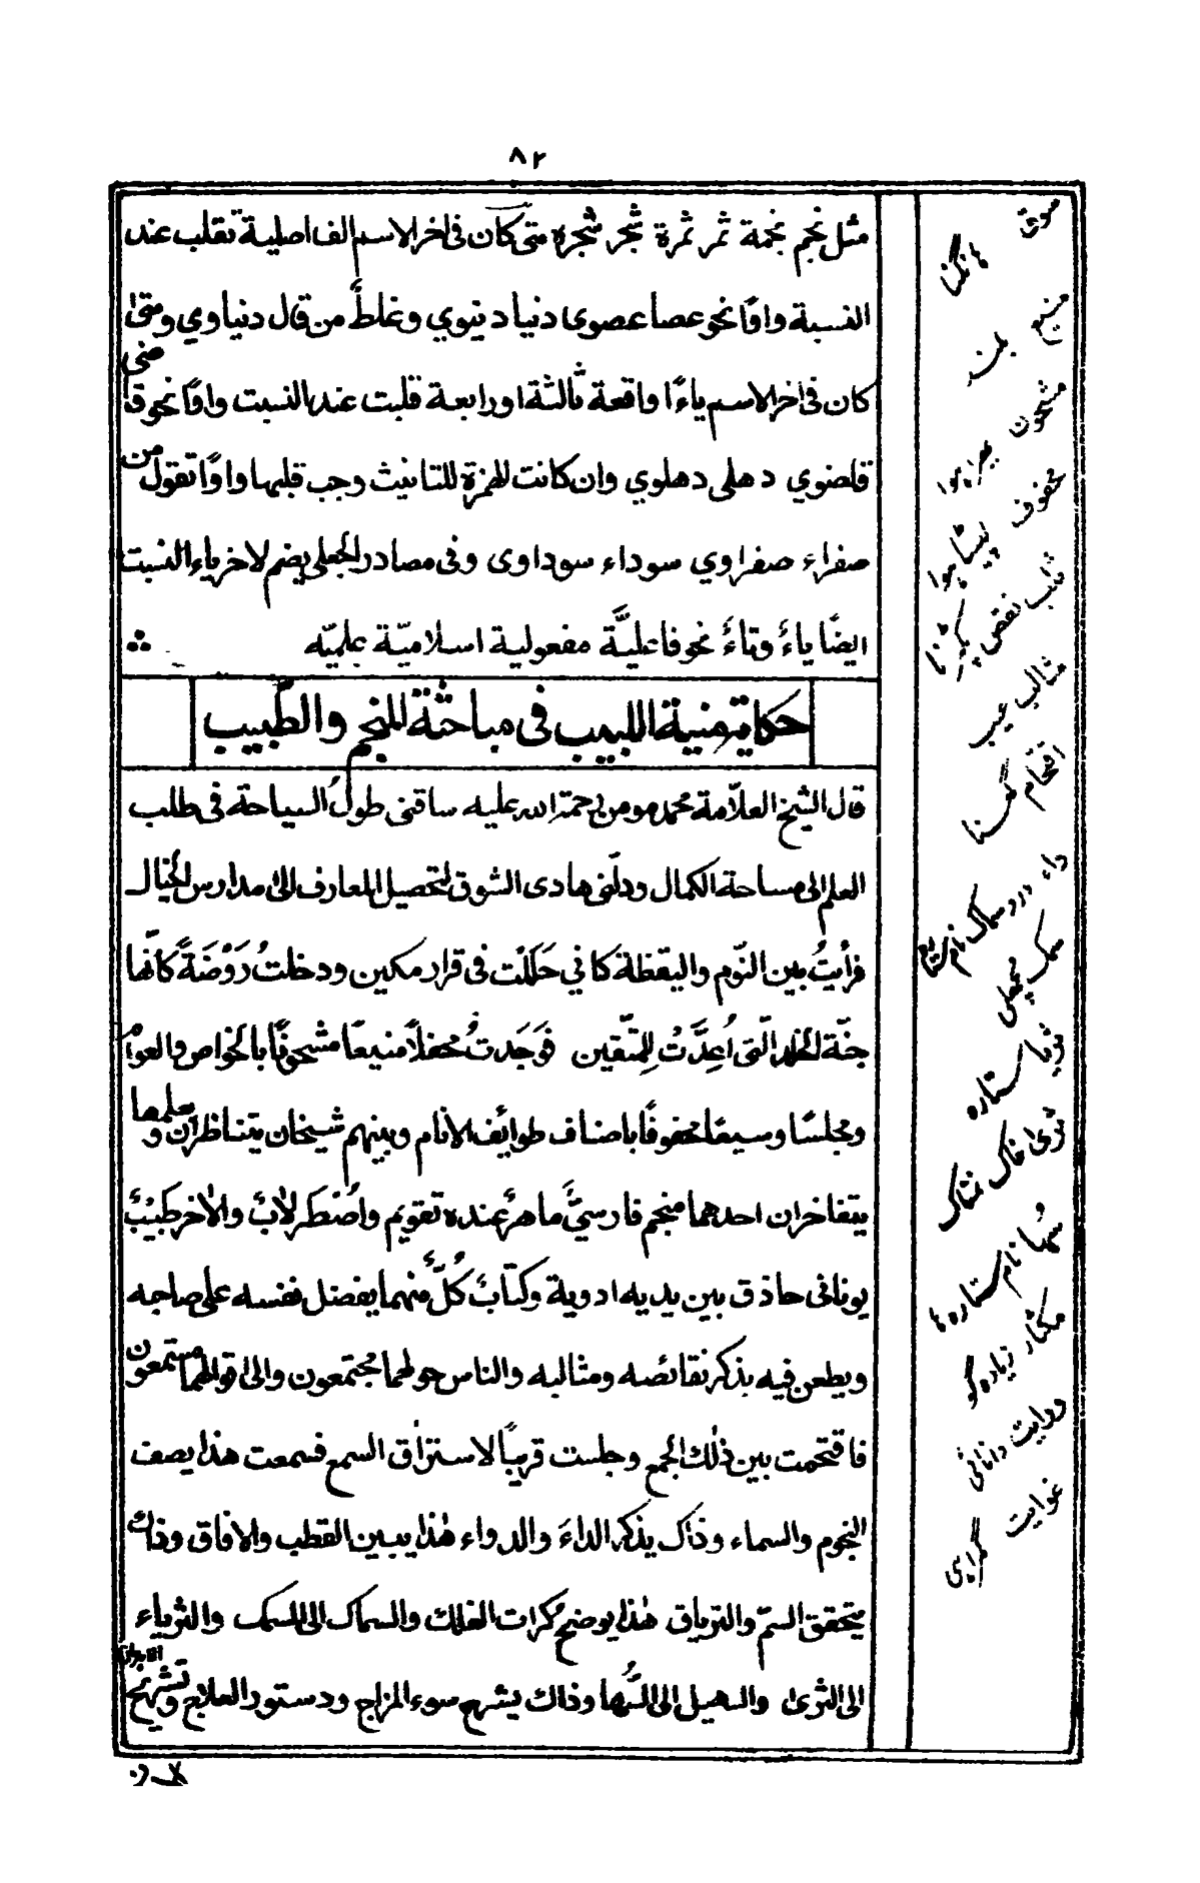 ٨٢
مثل نجم نجمة ثمر ثمرة شجر شجره متى كان فى اخر الاسم الف اصلية تقلب عند
النسبة واوًا نحو عصا عصوى دنيا دنيوي وغلط من قال دنياوي ومتى
كان فى اخر الاسم ياءً واقعة ثالثة او رابعة قلبت عند النسبت واوًا نحو قاضى
قاضوي دهلى دهلوي وان كانت للهمزة للتانيث وجب قلبها واوًا تقول من
صفراء صفراوي سوداء سوداوى وفى مصادر الجعلى يضم لاخر ياء النسبت
ايضًا ياءً وتاءً نحو فاعليَّة مفعولية اسلاميّة علميّه
حكاية منية اللبيب فى مباحثة المنجم والطّبيب
قال الشيخ العلّامة محمد مومن رحمة الله عليه ساقنى طولُ السياحة فى طلب
العلم الى مساحة الكمال ودلّنى هادى الشوق لتحصيل المعارف الى مدارس الخيال
فرأيتُ بين النّوم واليقظة كاني حَلَلت فى قرار مكين ودخلتُ رَوْضَةً كانّها
جنّة الخلد الّتى اُعِدَّتْ لِلمتّقين فوَجَدتُ محفلاً منيعًا مشحونًا بالخواص والعوام
ومجلسًا وسيعًا محفوفًا باصناف طوائف الانام وبينهم شيخان يتناظران و بعلمها
يتفاخران احدهما منجم فارسىٌّ ماهرٌ عنده تقويم واُضطرلابٌ والاخر طبيبٌ
يونانى حاذق بين يديه ادوية وكتابٌ كُلٌّ منهما يفضل نفسه على صاحبه
ويطعن فيه بذكر نقائصه ومثالبه والناس حولهما مجتمعون والى اقوالهما مستمعون
فاقتحمت بين ذلك الجمع وجلست قريبًا لاستراق السمع فسمعت هذا يصف
النجوم والسماء وذاك يذكر الداءَ والدواء هذا يبين القطب والافاق وذاك
يتحقق السمّ والترياق هذا يوضح كرات الفلك والسماك الى السمك والثرياء
الى الثرى والسهيل الى السُّها وذاك يشرح سوء المزاج ودستور العلاج وتشريح الابدان
سوق هانكنا
منيع بلند
مشحون بهرا هوا
محفوف لپٹا ہوا
مثالب عيب
اقتحام گھسنا
داء درد سماك نام ستاره
سمك مچھلی
ثريا ستاره
ثرى خاك نمناك
سُها نام ستاره
مكثار زياده گو
درايت دانائى
غوايت گمراہی